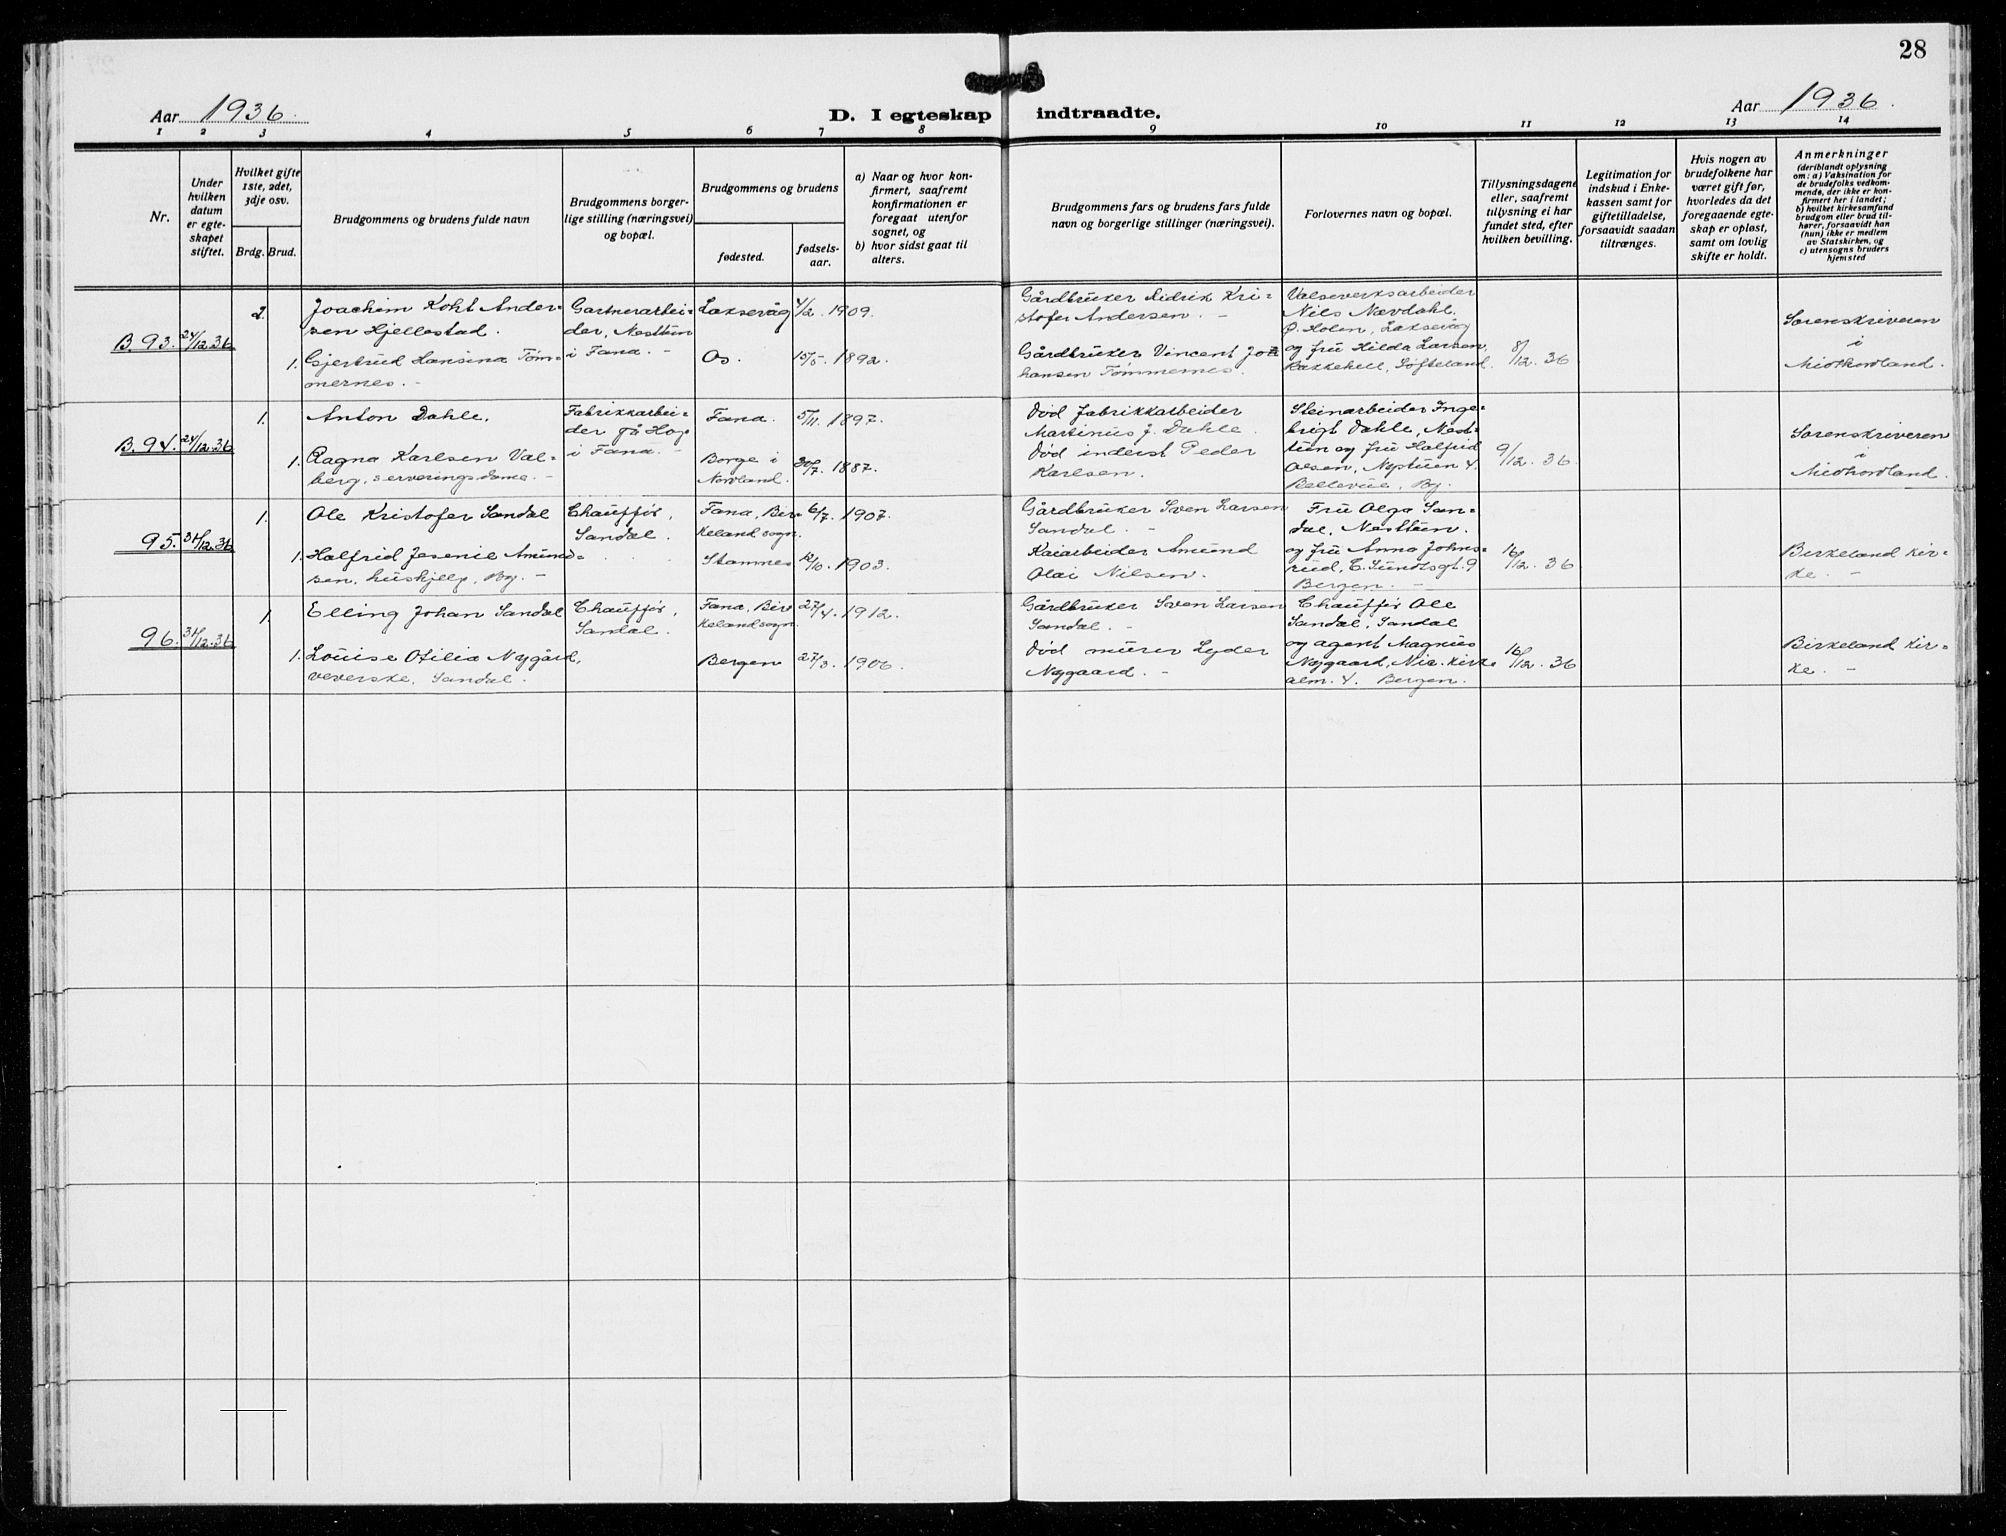 28
Aar 1936.
D. I egteskap indtraadte.
Aar 1936.
1 2 3 4 5 6 7 8 9 10 11 12 13 14
Nr.
Under
hvilken
datum
er egte-
skapet
stiftet.
Hvilket gifte
1ste, 2det,
3dje osv.
Brdg. Brud.
Brudgommens og brudens fulde navn
Brudgommens borger-
lige stilling (næringsvei)
og bopæl.
Brudgommens og brudens
fødested.
fødsels-
aar.
a) Naar og hvor kon-
firmert, saafremt
konfirmationen er
foregaat utenfor
sognet, og
b) hvor sidst gaat til
alters.
Brudgommens fars og brudens fars fulde
navn og borgerlige stillinger (næringsvei).
Forlovernes navn og bopæl.
Tillysningsdagene
eller, saafremt
tillysning ei har
fundet sted, efter
hvilken bevilling.
Legitimation for
indskud i Enke-
kassen samt for
giftetilladelse,
forsaavidt saadan
tiltrænges.
Hvis nogen av
brudefolkene har
været gift før,
hvorledes da det
foregaaende egte-
skap er opløst,
samt om lovlig
skifte er holdt.
Anmerkninger
(deriblandt oplysning
om: a) Vaksination for
de brudefolks vedkom-
mende, der ikke er kon-
firmert her i landet;
b) hvilket kirkesamfund
brudgom eller brud til-
hører, forsaavidt han
(hun) ikke er medlem
av Statskirken, og
c) utensogns bruders
hjemsted
B. 93. 24/12.36
2.
Joachim Koht Ander-
sen Hjellestad.
1. Gjertrud Hansina Tøm-
mernes. -
Gartnerarbei-
der, Nesttun
i Fana. -
Laksevåg 4/2. 1909.
Os. 15/5. 1892.
Gårdbruker Didrik Kri-
stofer Andersen. -
Gårdbruker Vincent Jo-
hansen Tømmernes.
Valseverksarbeider
Nils Nævdahl,
Ø. Holen, Laksevåg
og fru Hilda Larsen,
Rakkehell, Søfteland.
8/12. 36
Sorenskriveren
i
Midthordland.
B. 94. 24/12.36
1.
Anton Dahle.
1. Ragna Karlsen Val-
berg, serveringsdame. -
Fabrikkarbei-
der på Hop
i Fana. -
Fana. 5/11. 1897.
Borge i
Nordland. 30/7. 1887.
Død fabrikkarbeider
Martinus J. Dahle.
Død inderst Peder
Karlsen.
Steinarbeider Inge-
brigt Dahle, Nest-
tun og fru Halfrid
Olsen, Neptun v.
Bellevue, By.
9/12. 36.
Sorenskriveren
i
Midhordland.
95. 31/12.36
1.
Ole Kristofer Sandal
1. Halfrid Jesenie Amund-
sen, huskjelp, By. -
Chauffør,
Sandal.
Fana, Bir-
keland sogn. 6/7. 1907.
Stamnes 12/10. 1903.
Gårdbruker Sven Larsen
Sandal. -
Kaiarbeider Amund
Olai Nilsen.
Fru Olga San-
dal, Nesttun.
og fru Anna Johns-
rud, E. Sundtsgt. 9
Bergen. -
16/12. 36
Birkeland kir-
ke. -
96. 31/12.36
1.
Elling Johan Sandal
1. Louise Otilia Nygård,
veverske, Sandal.
Chauffør,
Sandal.
Fana, Bir
keland sogn. 27/4. 1912.
Bergen 27/3. 1906.
Gårdbruker Sven Larsen
Sandal. -
Død murer Lyder
Nygaard. -
Chauffør Ole
Sandal, Sandal
og agent Magnus
Nygaard, Nic. kirke
alm. 4. Bergen.
16/12. 36
Birkeland kir-
ke. -